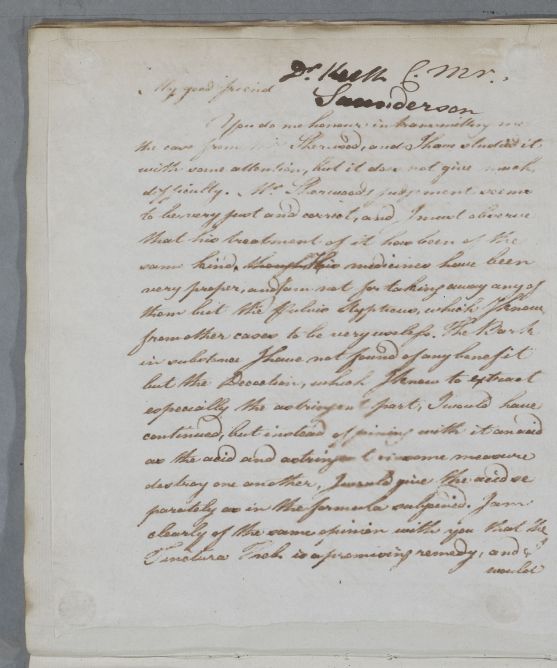 Dr. Keith C. Mr.
Saunderson
My good friend
You do me honour in transmitting me
the case from Mr Sherwood, and I have studied it
with some attention, but it does not give much
difficulty. Mr Sherwood's judgement seems
to be very just and correct, and I must observe
that his treatment of it has been of the
same kind, though His medicines have been
very proper, and I am not for taking away any of
them but the Pulvis Stypticus, which I know
from other cases to be very useless. The Bark
in substance I have not found of any benefit
but the Decoction, which I know to extract
especially the astringent part, I would have
continued, but instead of joining with it an acid
as the acid and astringent in some measure
destroy one another, I would give the acid se
parately as in the formula subjoined. I am
clearly of the same opinion with you that the
Tinctura is a promising remedy, and
would